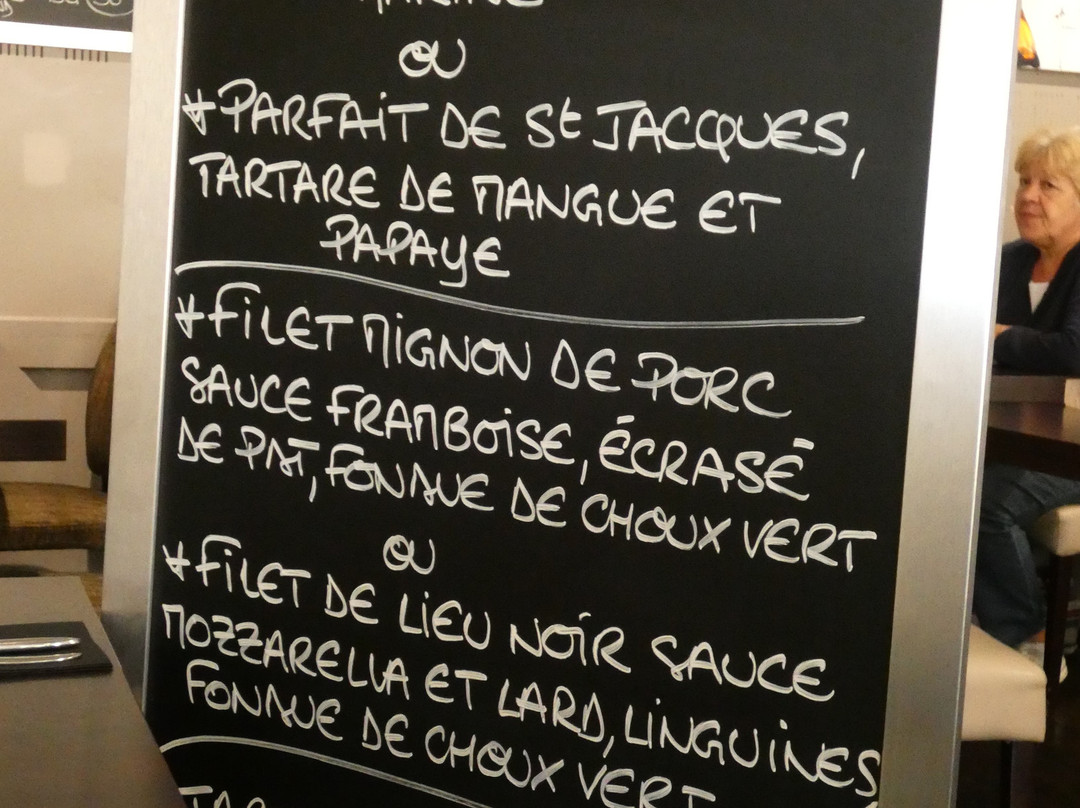 OU
*PARFAIT DE St JACQUES,
TARTARE DE MANGUE ET
PAPAYE
*FILET MIGNON DE PORC
SAUCE FRAMBOISE, ÉCRASÉ
DE PDT, FONDUE DE CHOUX VERT
OU
*FILET DE LIEU NOIR SAUCE
MOZZARELLA ET LARD, LINGUINES
FONDUE DE CHOUX VERT